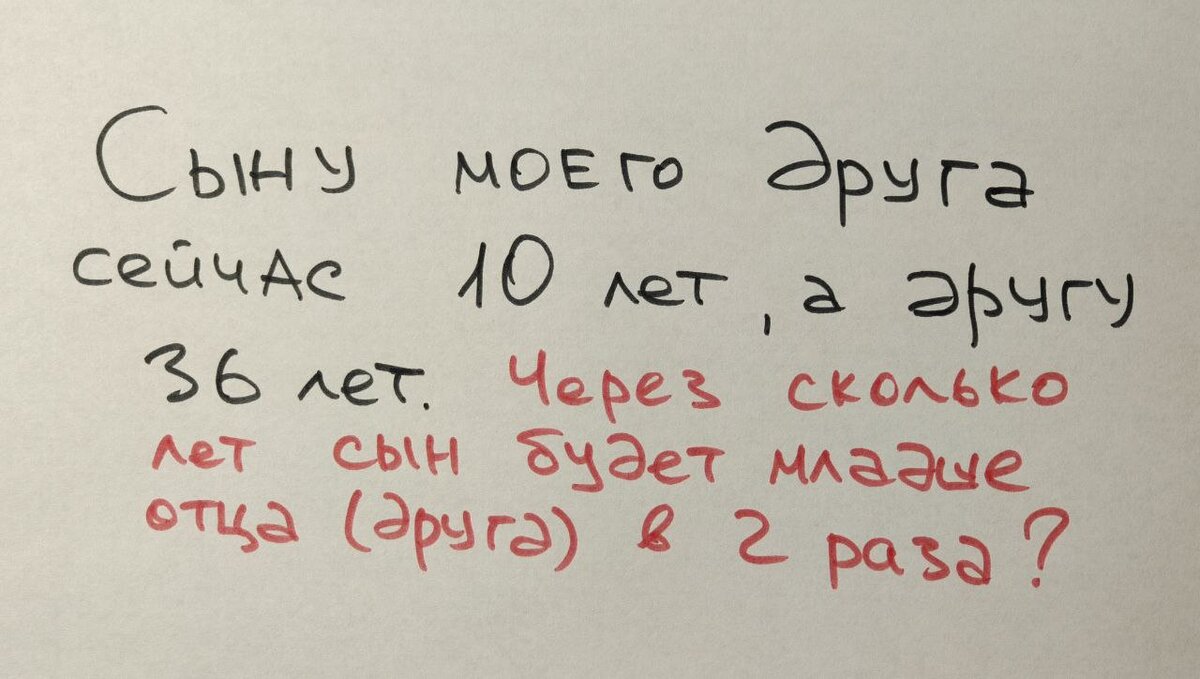 Сыну моего друга
сейчас 10 лет, а другу
36 лет. Через сколько
лет сын будет младше
отца (друга) в 2 раза?